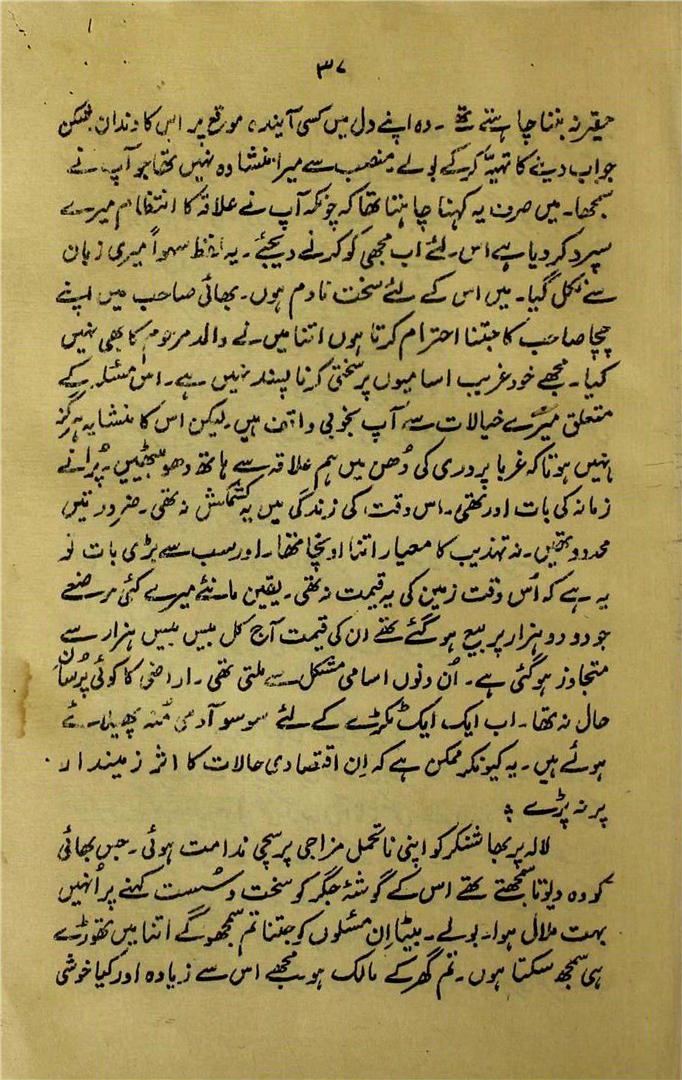 ۳۷
حقیر نہ بننا چاہتے تھے۔ وہ اپنے دل میں کسی آیندہ موقع پر اس کا دندان شکن
جواب دینے کا تہیّہ کر کے بولے۔ منصب سے میرا منشا وہ نہیں تھا جو آپ نے
سمجھا۔ میں صرف یہ کہنا چاہتا تھا کہ چونکہ آپ نے علاقہ کا انتظام میرے
سپرد کر دیا ہے اس لئے اب مجھی کو کرنے دیجئے۔ یہ لفظ سہواً میری زبان
سے نکل گیا۔ میں اس کے لئے سخت نادم ہوں۔ بھائی صاحب میں اپنے
چچا صاحب کا جتنا احترام کرتا ہوں اتنا میں نے والد مرحوم کا بھی نہیں
کیا۔ مجھے خود غریب اسامیوں پر سختی کرنا پسند نہیں ہے۔ اس مسئلہ کے
متعلق میرے خیالات سے آپ بخوبی واقف ہیں۔ لیکن اس کا منشا یہ ہرگز
نہیں ہوتا کہ غربا پروری کی دُھن میں ہم علاقہ سے ہاتھ دھو بیٹھیں۔ پُرانے
زمانہ کی بات اور تھی۔ اس وقت کی زندگی میں یہ کشمکش نہ تھی۔ ضرورتیں
محدود تھیں۔ نہ تہذیب کا معیار اتنا اونچا تھا۔ اور سب سے بڑی بات تو
یہ ہے کہ اُس وقت زمین کی یہ قیمت نہ تھی۔ یقین مانئے میرے کئی مرضعے
جو دو دو ہزار پر بیع ہو گئے تھے ان کی قیمت آج کل بیس بیس ہزار سے
متجاوز ہو گئی ہے۔ اُن دنوں اسامی مشکل سے ملتی تھی۔ اراضی کا کوئی پُرسان
حال نہ تھا۔ اب ایک ایک ٹکڑے کے لئے سو سو آدمی مُنہ پھیلائے
ہوئے ہیں۔ یہ کیونکر ممکن ہے کہ اِن اقتصادی حالات کا اثر زمیندار
پر نہ پڑے ؞
لالہ پربھا شنکر کو اپنی نا تحمل مزاجی پر سچی ندامت ہوئی۔ جس بھائی
کو وہ دیوتا سمجھتے تھے اس کے گوشۂ جگر کو سخت و سُست کہنے پر اُنہیں
بہت ملال ہوا۔ بولے۔ بیٹا اِن مسئلوں کو جتنا تم سمجھو گے اتنا میں تھوڑے
ہی سمجھ سکتا ہوں۔ تم گھر کے مالک ہو۔ مجھے اس سے زیادہ اور کیا خوشی